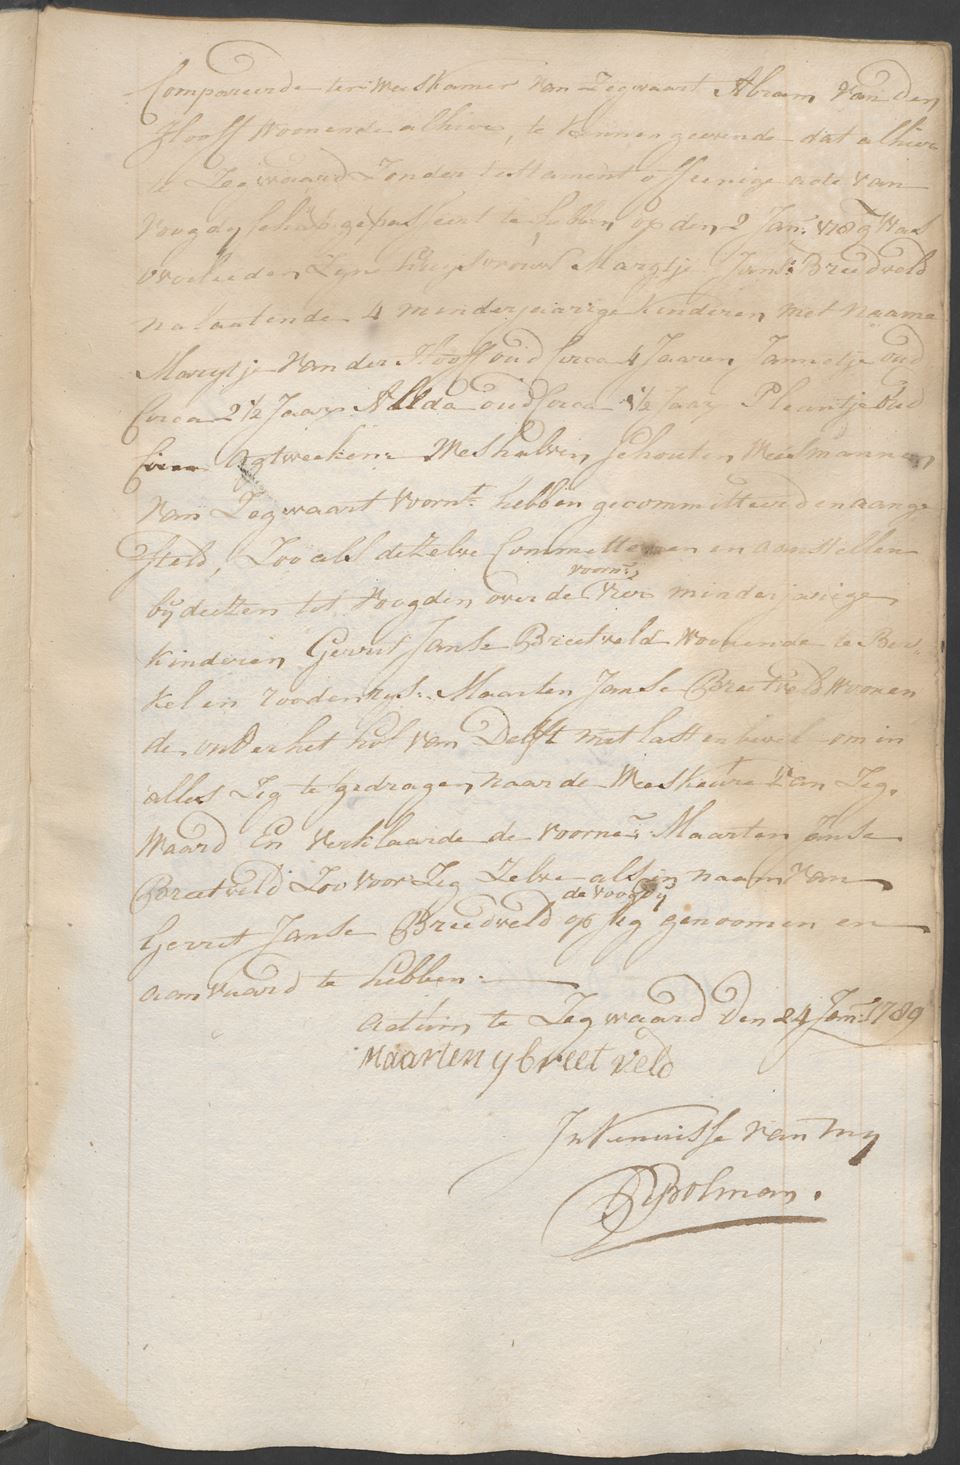 Compareerde ter Weeskamer van Zegwaart Abram van den
Hooff Woonende alhier, te kennen geevende dat alhier
te Zegwaard Zonder testament off eenige acte van
voogdyschap gepasseert te hebben op den 2 Jan: 1789 Was
overleeden Zyn huysvrouw Margtje Jans: Breedveld
nalaatende 4 minderjaarige kinderen met naame
Marytje van der Hooff oud Circa 4 Jaaren Jannetje oud
Circa 2 1/2 Jaar Allda oud Circa 1 1/2 Jaar Pleuntje oud
Circa Agt weeken: Weshalven Schout en Weesmannen
van Zegwaart voornt. hebben gecommitteerd en aange
steld, Zoo als dezelve Committeeren en aanstellen
voorn:
by deezen tot voogden over de Vier minderjarige
kinderen Gerrit Janse Breetveld woonende te Ber-
kel en roodenrys: Maarten Janse Breetveld Woonen
de onder het hof van Delft met last en bevel om in
alles Zig te gedragen naar de Weeskeure van Zeg.
Waard En verklaarde de voorne: Maarten Janse
Breetveld Zoo voor Zig Zelve als in naam van
de voogdy
Gerrit Janse Breedveld op sig genoomen en
aanvaard te hebben:
Actum te Zegwaard Den 24 Jan: 1789
Maarten y breetveld
In Kennisse van my
Bolman.